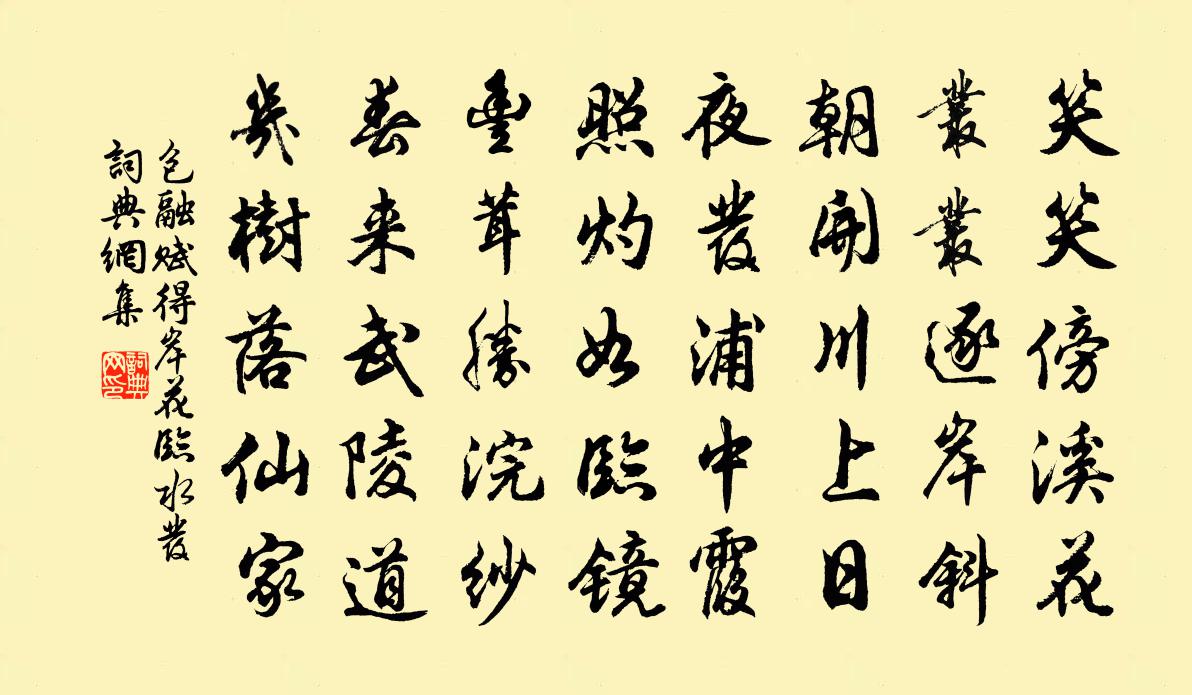 笑笑傍溪花
叢叢逐岸斜
朝開川上日
夜發浦中霞
照灼如臨鏡
豐茸勝浣紗
春来武陵道
幾樹落仙家
包融賦得岸花臨水發
詞典網集
詞典
网印